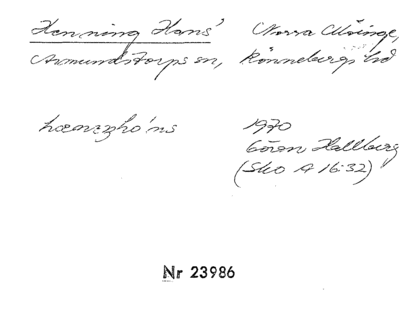 Henning Hans' Norra Möinge,
Asmundtorps sn, Rönnebergs hd
1970
Göran Hallberg
(Sko A 16:32)
Nr 23986